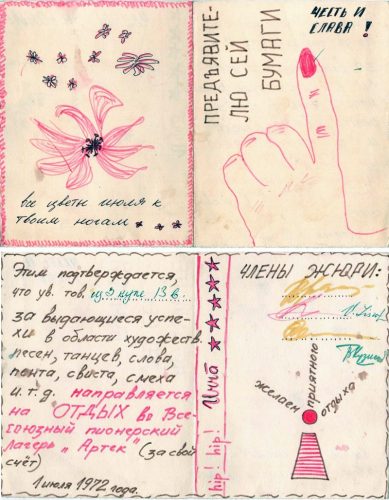 все цветы июля к
твоим ногам
ПРЕДЪЯВИТЕ-
ЛЮ СЕЙ
БУМАГИ
ЧЕСТЬ И
СЛАВА!
Этим подтверждается,
что ув. тов. из 5 купе 13 в.
за выдающиеся успе-
хи в области художеств.
песен, танцев, слова,
пента, свиста, смеха
и. т. д. направляется
на ОТДЫХ во Все-
союзный пионерский
лагерь „Артек" (за свой
счёт)
1 июля 1972 года.
hip! hip! Инна
ЧЛЕНЫ ЖЮРИ:
желаем
приятного
отдыха